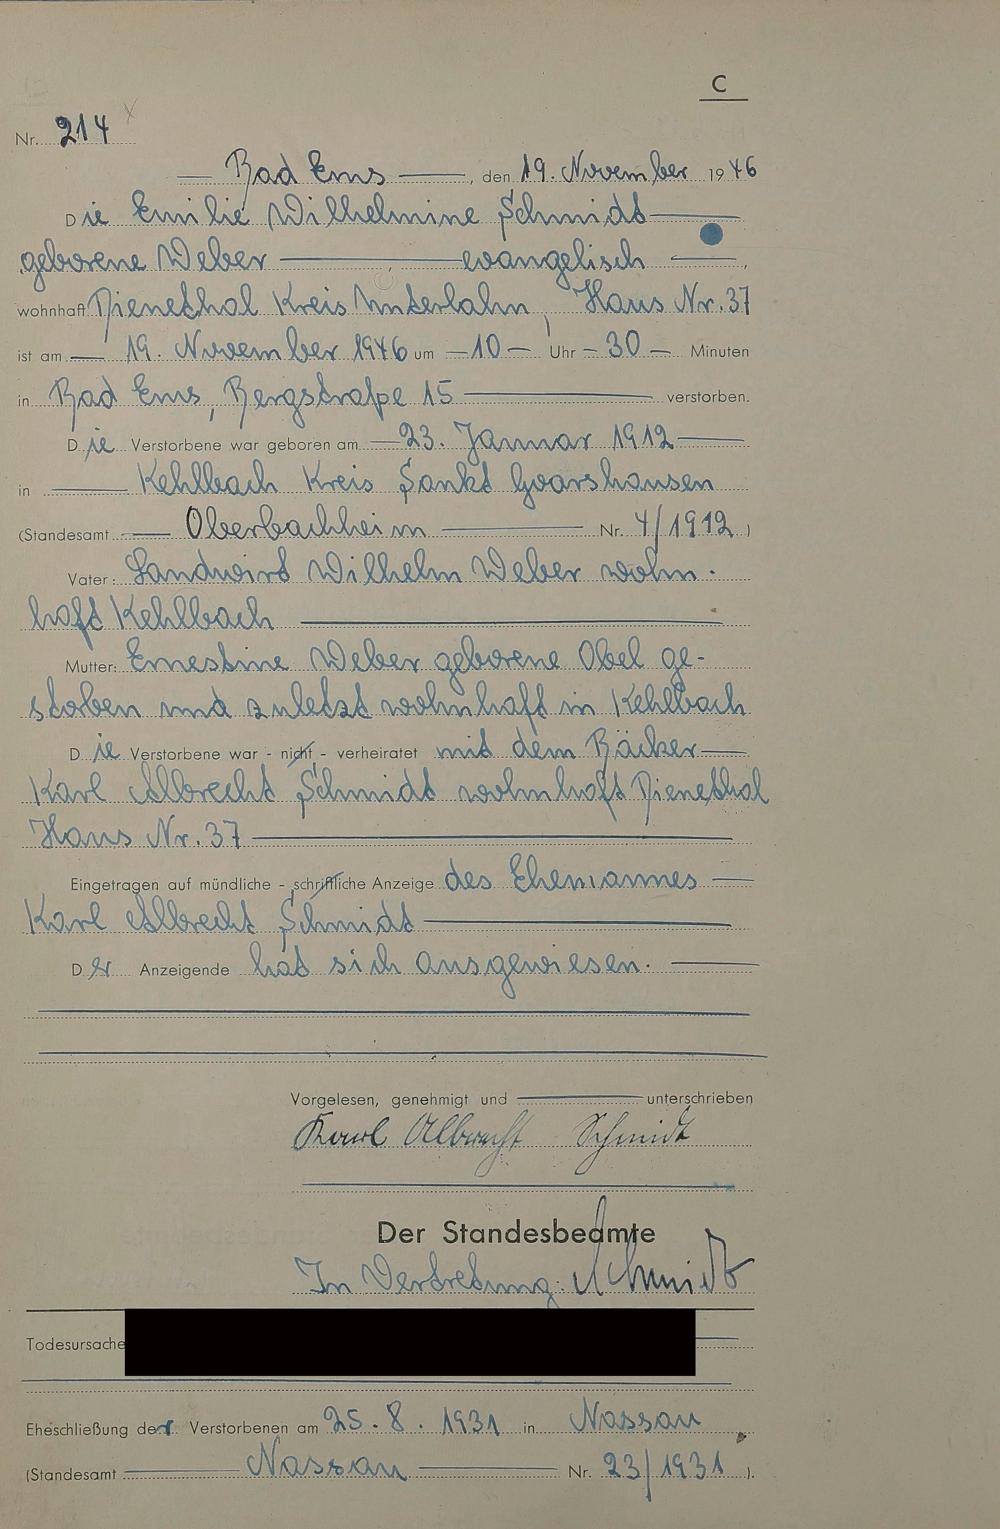 C
Nr. 214
Bad Ems, den 19. November 1946
Die Emilie Wilhelmine Schmidt
geborene Weber evangelisch,
wohnhaft Dienethal Kreis Unterlahn, Haus Nr. 37
ist am 19. November 1946 um 10 Uhr 30 Minuten
in Bad Ems, Bergstraße 15 verstorben.
Die Verstorbene war geboren am 23. Januar 1912
in Kehlbach Kreis Sankt Goarshausen
(Standesamt Oberbachheim Nr. 4/1912)
Vater: Landwirt Wilhelm Weber wohn-
haft Kehlbach
Mutter: Ernestine Weber geborene Obel ge-
storben und zuletzt wohnhaft in Kehlbach
Die Verstorbene war - nicht - verheiratet mit dem Bäcker
Karl Albrecht Schmidt wohnhaft Dienethal
Haus Nr. 37
Eingetragen auf mündliche - schriftliche Anzeige des Ehemannes
Karl Albrecht Schmidt
Der Anzeigende hat sich ausgewiesen.
Vorgelesen, genehmigt und unterschrieben
Karl Albrecht Schmidt
Der Standesbeamte
In Vertretung: Schmidt
Todesursache
Eheschließung der Verstorbenen am 25.8.1931 in Nassau
(Standesamt Nassau Nr. 23/1931).